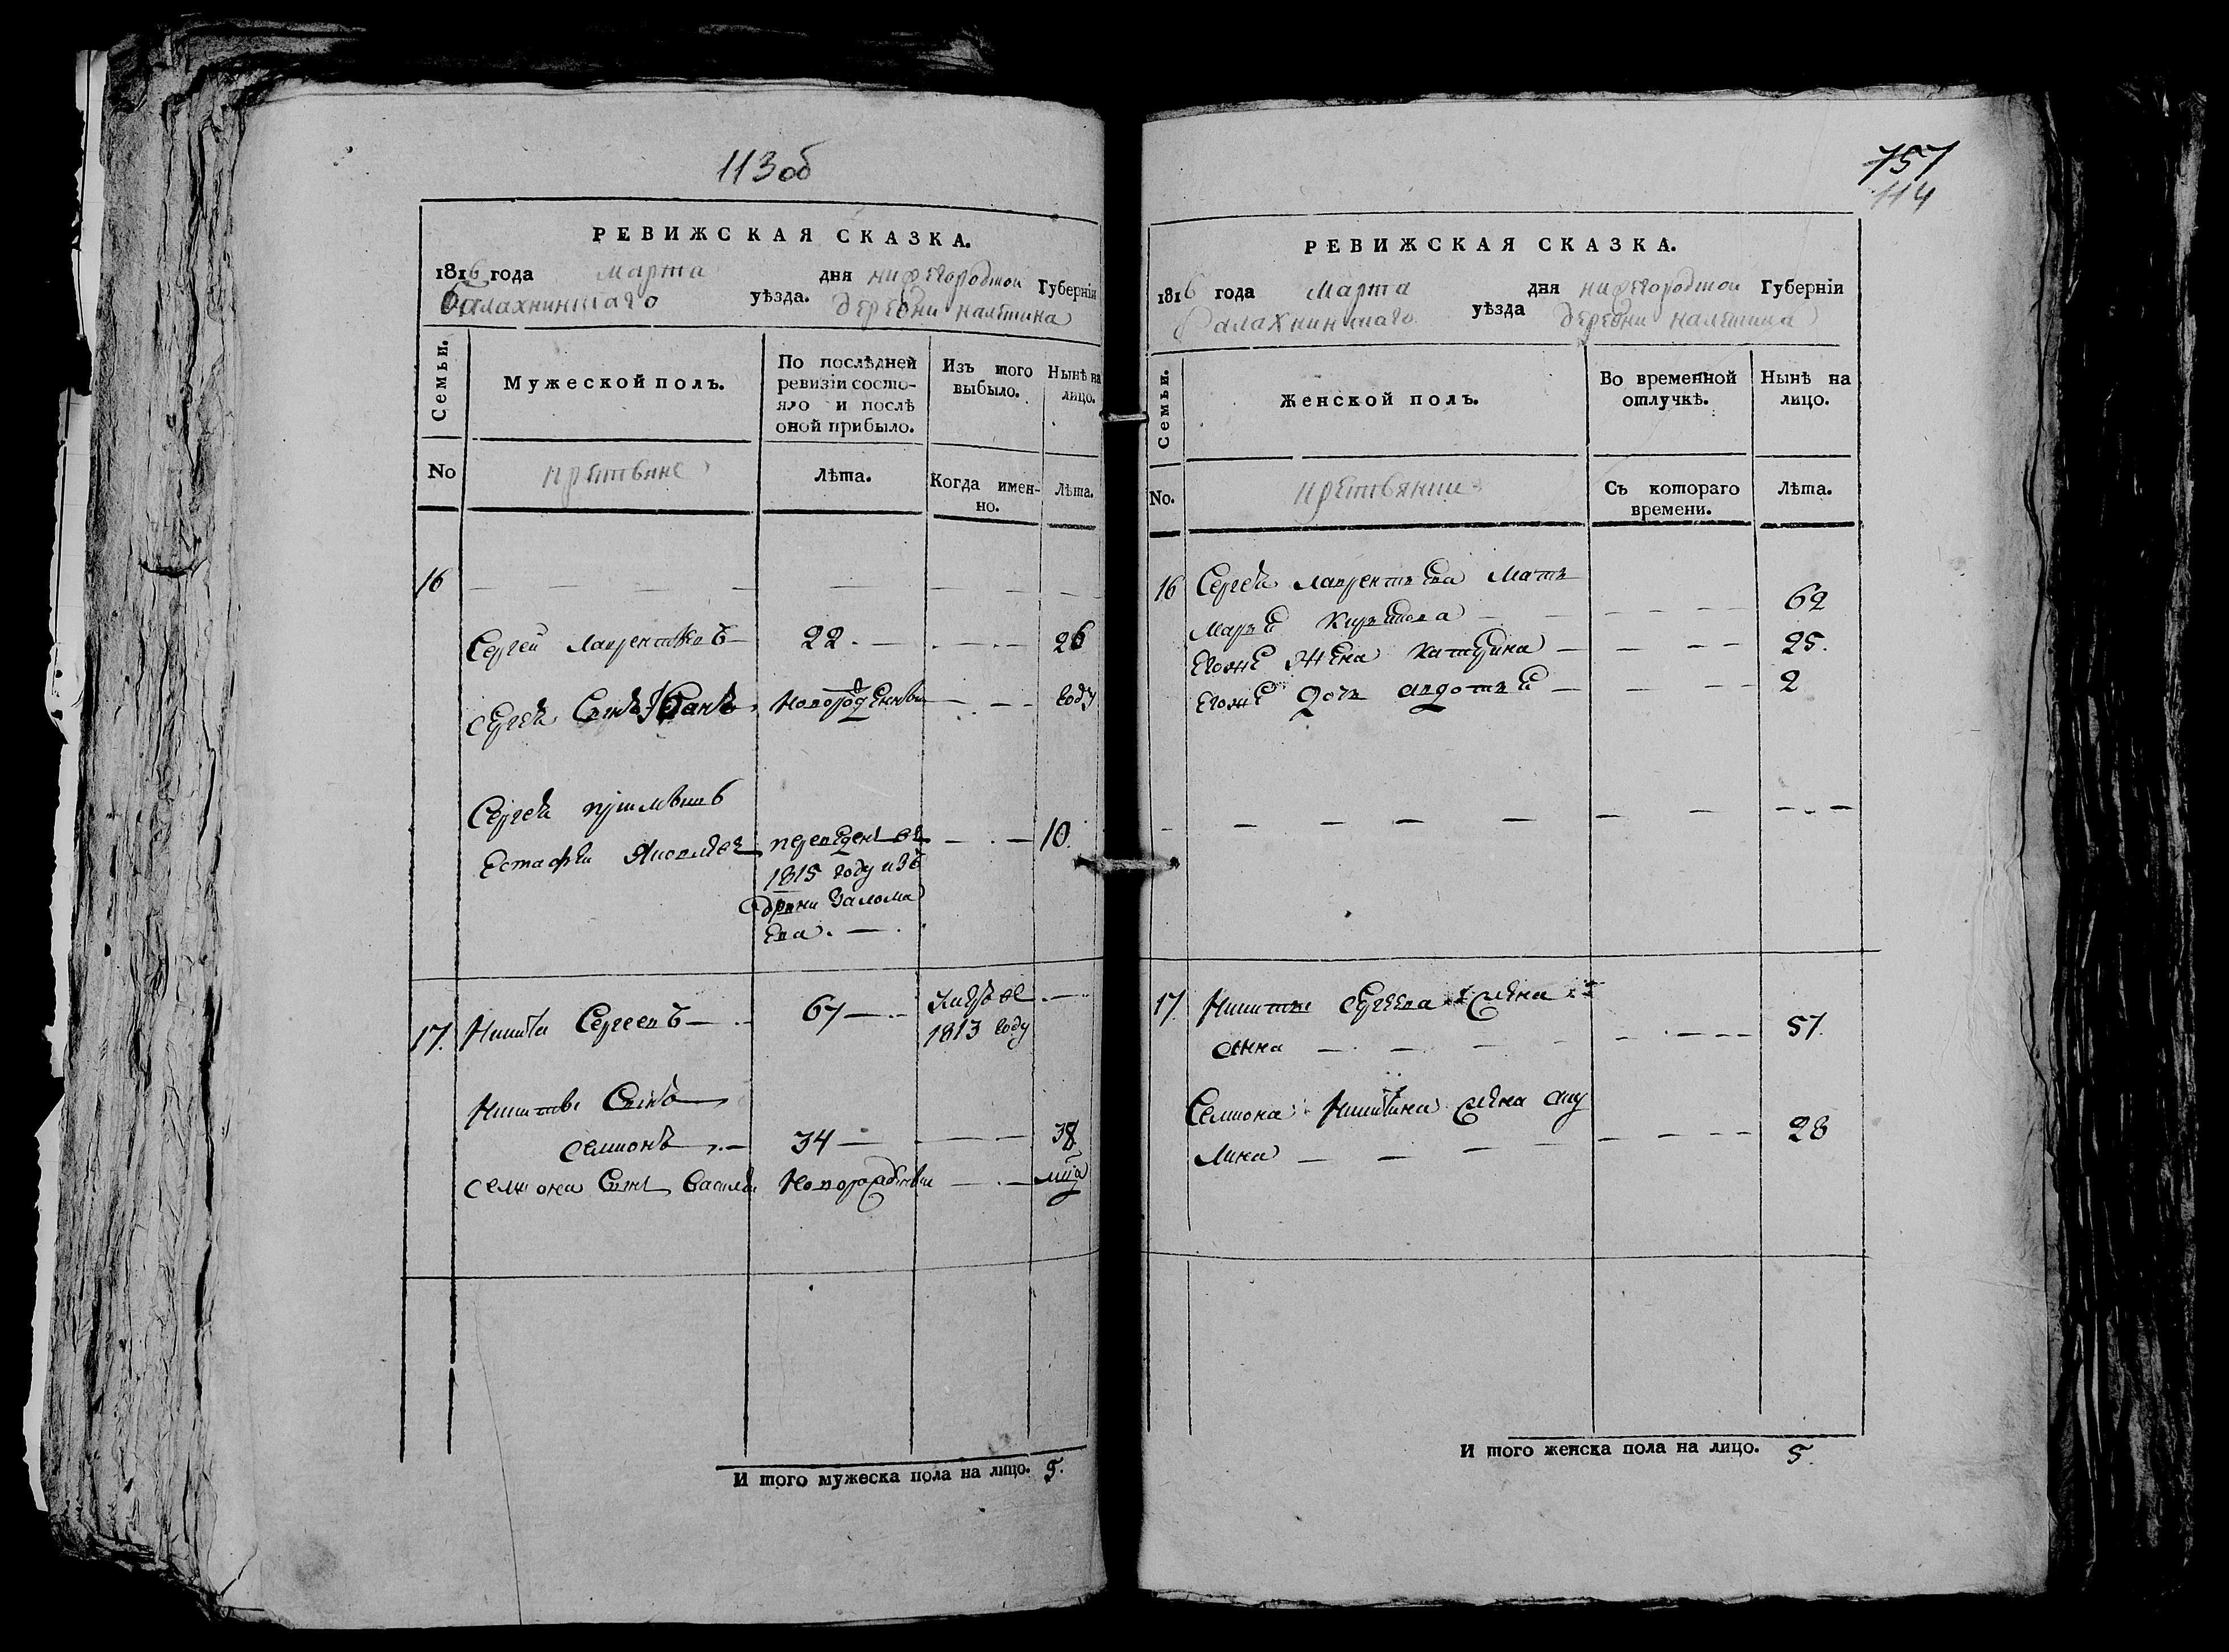 113 об
РЕВИЖСКАЯ СКАЗКА.
1816 года марта дня нижегородской Губерніи
балахнинскаго уѣзда. деревни
Семьи.
Мужеской полъ.
По послѣдней
ревизіи состо-
яло и послѣ
оной прибыло.
Изъ того
выбыло.
Нынѣ на
лицо.
No
крестьяне
Лѣта.
Когда имен-
но.
Лѣта.
16
Сергей Лаврентьевъ 22. 26
Сергея Сынъ Иванъ новорожденны году
Сергея приимышъ
Естафеи Яковлевъ переведенъ въ 10.
1815 году изъ
дрвни Залома
ева.
17. Никита Сергеевъ 67 умре въ
1813 году
Никиты Сынъ
Семионъ 34 38
Семиона Сынъ Василеи Новорожденны
И того мужеска пола на лицо. 5.
757
114
РЕВИЖСКАЯ СКАЗКА.
1816 года Марта дня нижегородской Губерніи
балахнинскаго уѣзда деревни
Семьи.
Женской полъ.
Во временной
отлучкѣ.
Нынѣ на
лицо.
No.
крестьянки
Съ котораго
времени.
Лѣта.
16 Сергея Лаврентьева Мать
Марья 62
Егоже Жена Катерина 25.
Егоже Дочь авдотья 2
17. Никиты Сергеева жена
анна 57.
Семиона Никитина жена аку
лина 28
И того женска пола на лицо. 5.